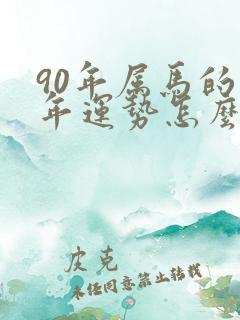 90年属馬的
年運勢怎麽
皮克
未经同意禁止转载